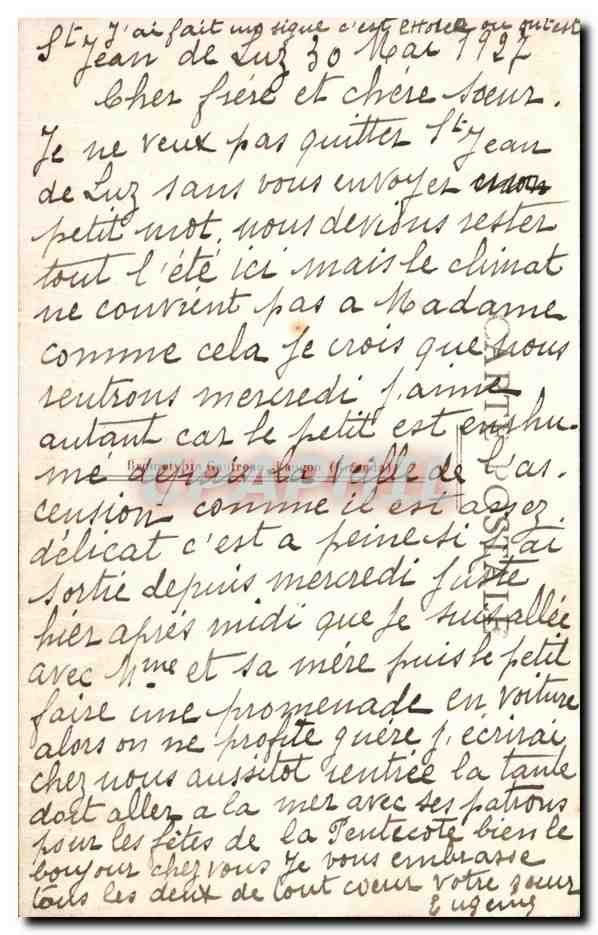 J'ai fait une signe c'est l'Hotel ou on est
St Jean de Luz 30 Mai 1927
Cher frére et chére sœur.
Je ne veux pas quitter St Jean
de Luz sans vous envoyer mon
petit mot, nous devions rester
tout l'été ici mais le climat
ne couvrient pas a Madame
comme cela je crois que nous
rentrons mercredi j'aime
autant car le petit est enrhu-
mé depuis la veille de l'as-
cension comme il est assez
délicat c'est a peine si j'ai
sortie depuis mercredi juste
hier aprés midi que je suis allée
avec Mme et sa mére puis le petit
faire une promenade en voiture
alors on ne profite guére j'écrirai
chez nous aussitot rentrée la tante
doit aller a la mer avec ses patrons
pour les fêtes de la Pentecote bien le
bonjour chez vous Je vous embrasse
tous les deux de tout cœur votre sœur
Eugenie
CARTE POSTALE